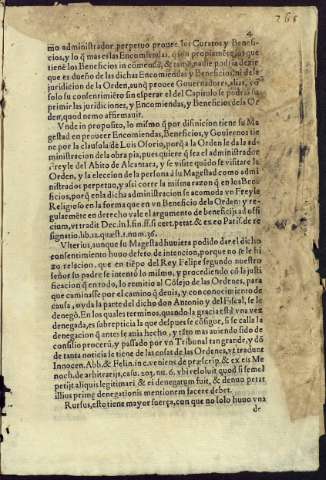 4
mo administrador perpetuo prouee los Curatos y Benefi-
cios, y lo q̃ mas es las Encomiendas, q̃ son propiamẽte los que
tiene los Beneficios in comenda, & tamẽ, nadie podria dezir
que es dueño de las dichas Encomiendas y Beneficios, ni de la
jurisdicion de la Orden, aunq̃ prouee Gouernadores, alias, q̃ de
solo su consentimiẽto sin esperar el del Capitulo se podria su
primir las juridiciones, y Encomiendas, y Beneficios dela Or
der, quod nemo affirmauit.
Vnde in proposito, lo mismo q̃ por disinicion tiene su Ma
gestad en proueer Encomiendas, Beneficios, y Gouiernos tiene
ne por la clausula de Luis Osorio, porq̃ a la Orden se da la ad
ministracion de la obra pia, pues quiere q̃ sea el administrador
Freyle del Abito de Alcantara, y se visite quãdo se visitare la
Orden, y la eleccion de la persona à su Magestad como admi
nistrador perpetuo, y assi corre la misma razon q̃ en los Bene
ficios, porq̃ en la dicha administracion se acomoda vn Freyle
Religioso en la forma que en vn Beneficio de la Orden: y re-
gularmẽte en derecho vale el argumento de beneficijs ad off
cium, vt tradit Dec. in l. fin. ff. si cert. petat. & ex eo Paris. de re
signatio. lib. 12. quæst. 1. num. 36.
Vlterius, aunque su Magestad huuiera podido dar el dicho
consentimiento huuo defeto de intencion, porque no se le hi
zo relacion, que en tiẽpo del Rey Felipe segundo nuestro
señor su padre se intentò lo mismo, y procediendo cõ la justi
ficacion q̃ en todo, lo remitio al Cõsejo de las Ordenes, para
que caminasse por el camino q̃ deuia, y con conocimiento de
causa, y oyda la parte del dicho don Antonio y del Fiscal, se le
denegò. En los quales terminos, quando la gracia està vna vez
denegada, es subrepticia la que despues se cõsigue, si se calla la
denegacion q̃ antes se auia hecho, y tãto mas auiendo sido de
consilio procerũ, y passado por vn Tribunal tan grande, y dõ
de tanta noticia se tiene de las cosas de las Ordenes, vt tradunt
Innocen. Abb. & Felin. in c. veniens de præscrip. & ex eis Me
noch. de arbitrarijs, casu. 203. nu. 6. vbi resoluit quod si semel
petijt aliquis legitimari, & ei denegatum fuit, & denuo petat
illius primæ denegationis mentionem facere debet.
Rursus, esto tiene mayor fuerça, con que no solo huuo vna
de